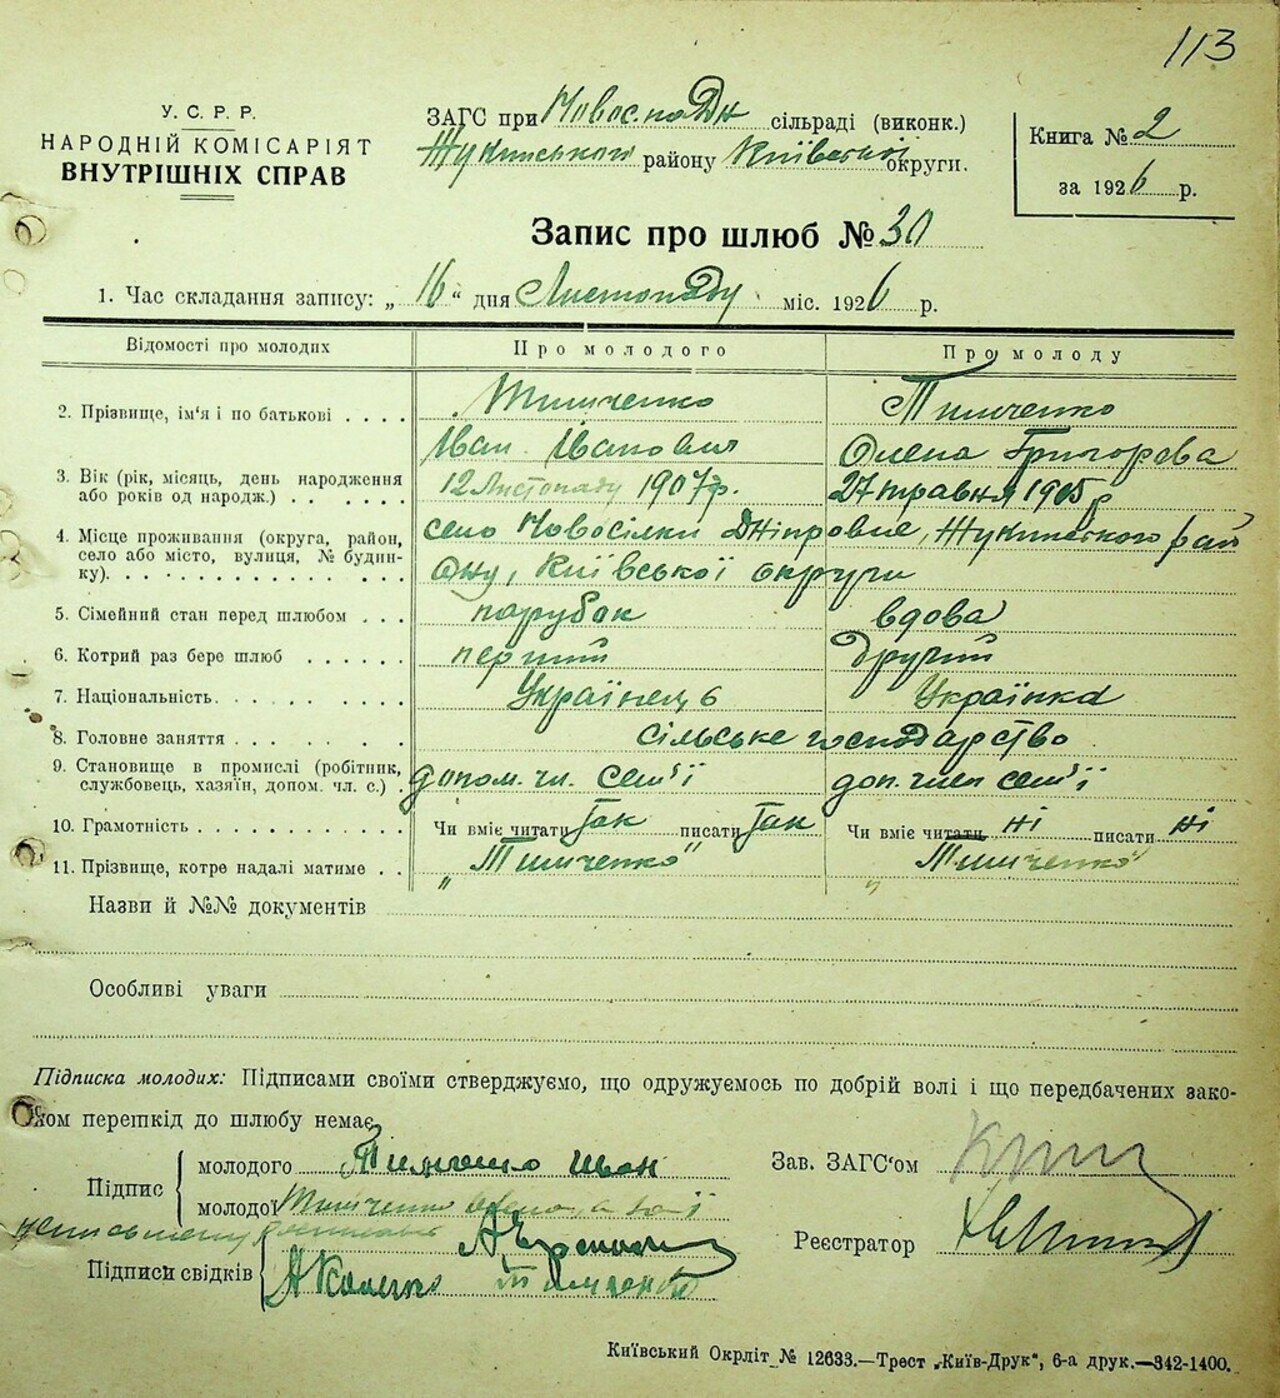 113
У. С. Р. Р.
НАРОДНІЙ КОМІСАРІЯТ
ВНУТРІШНІХ СПРАВ
ЗАГС при Новос.-по-Дн сільраді (виконк.)
Жукинського району Київської округи.
Книга № 2
за 1926 р.
Запис про шлюб № 30
1. Час складання запису: „16“ дня Листопаду міс. 1926 р.
Відомості про молодих Про молодого Про молоду
2. Прізвище, ім'я і по батькові . . . . Тимченко Тимченко
Іван Іванович Олена Григорева
3. Вік (рік, місяць, день народження або років од народж.) . . . . . . 12 Листопаду 1907 р. 27 травня 1905 р
4. Місце проживання (округа, район, село або місто, вулиця, № будинку). село Новосілки Дніпровие, Жукинського рай
ону, Київської округи
5. Сімейний стан перед шлюбом . . . парубок вдова
6. Котрий раз бере шлюб . . . . . . перший другий
7. Національність. . . . . . . . . Українець Українка
8. Головне заняття . . . . . . . сільське господарство
9. Становище в промислі (робітник, службовець, хазяїн, допом. чл. с.) . допом. чл. сем'ї доп. член сем'ї
10. Грамотність . . . . . . . . . . . Чи вміє читати так писати так Чи вміє читати ні писати ні
11. Прізвище, котре надалі матиме . . „Тимченко“ „Тимченко“
Назви й №№ документів
Особливі уваги
Підписка молодих: Підписами своїми стверджуємо, що одружуємось по добрій волі і що передбачених зако-
ном перешкід до шлюбу немає.
Підпис молодого Тимченко Иван
молодої Тимченко Олена, а за її
неписьменну
Підписи свідків
Тимченко
Зав. ЗАГС'ом
Реєстратор
Київський Окрліт № 12633.—Трест „Київ-Друк“, 6-а друк.—342-1400.